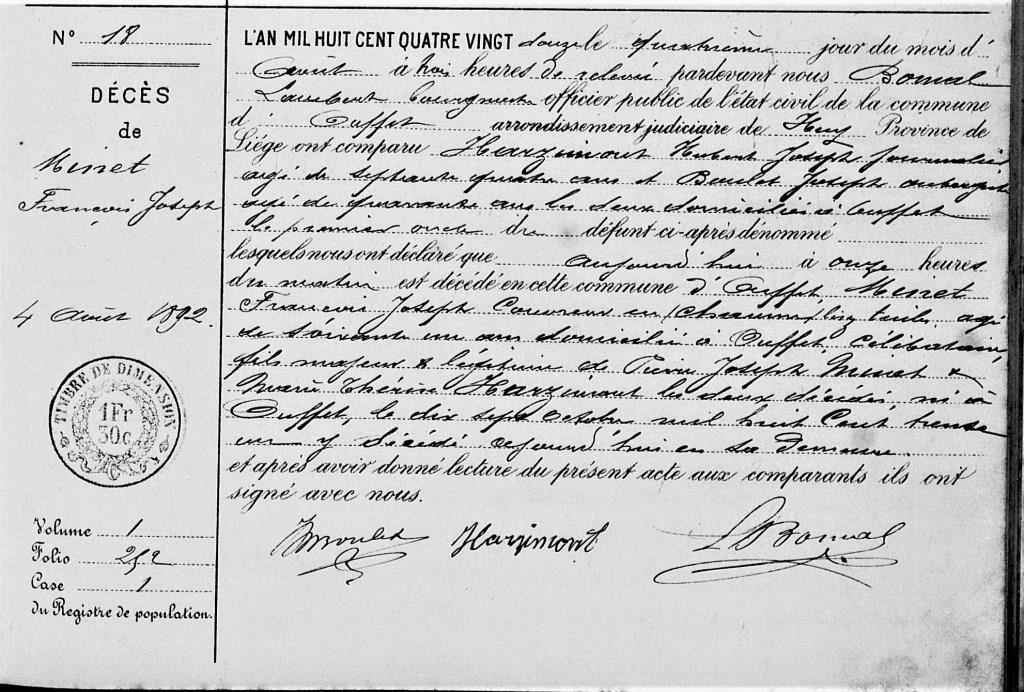 N° 18
DÉCÈS
de
Minet
François Joseph
4 Août 1892.
TIMBRE DE DIMENSION
1Fr
30c.
Volume 1
Folio
Case 1
du Registre de population.
L'AN MIL HUIT CENT QUATRE VINGT douze le quatrième jour du mois d'
Août à trois heures de relevée pardevant nous Bomal
Lambert bourgmestre officier public de l'état civil de la commune
d' Ouffet arrondissement judiciaire de Huy Province de
Liége ont comparu Harzimont Hubert Joseph journalier
agé de septante quatre ans et Boulet Joseph aubergiste
agé de quarante ans les deux domiciliés à Ouffet
le premier oncle du défunt ci-après dénommé
lesquels nous ont déclaré que aujourd'hui à onze heures
du matin est décédé en cette commune d'Ouffet, Minet
François Joseph Couvreur en (chaume) agé
de soixante un ans domicilié à Ouffet, célibataire,
fils majeur & légitime de Pierre Joseph Minet &
Marie Thérèse Harzimont les deux décédés, né à
Ouffet, le dix sept Octobre mil huit Cent trente
un y décédé aujourd'hui en sa demeure.
et après avoir donné lecture du présent acte aux comparants ils ont
signé avec nous.
Boulet Harzimont LBomal